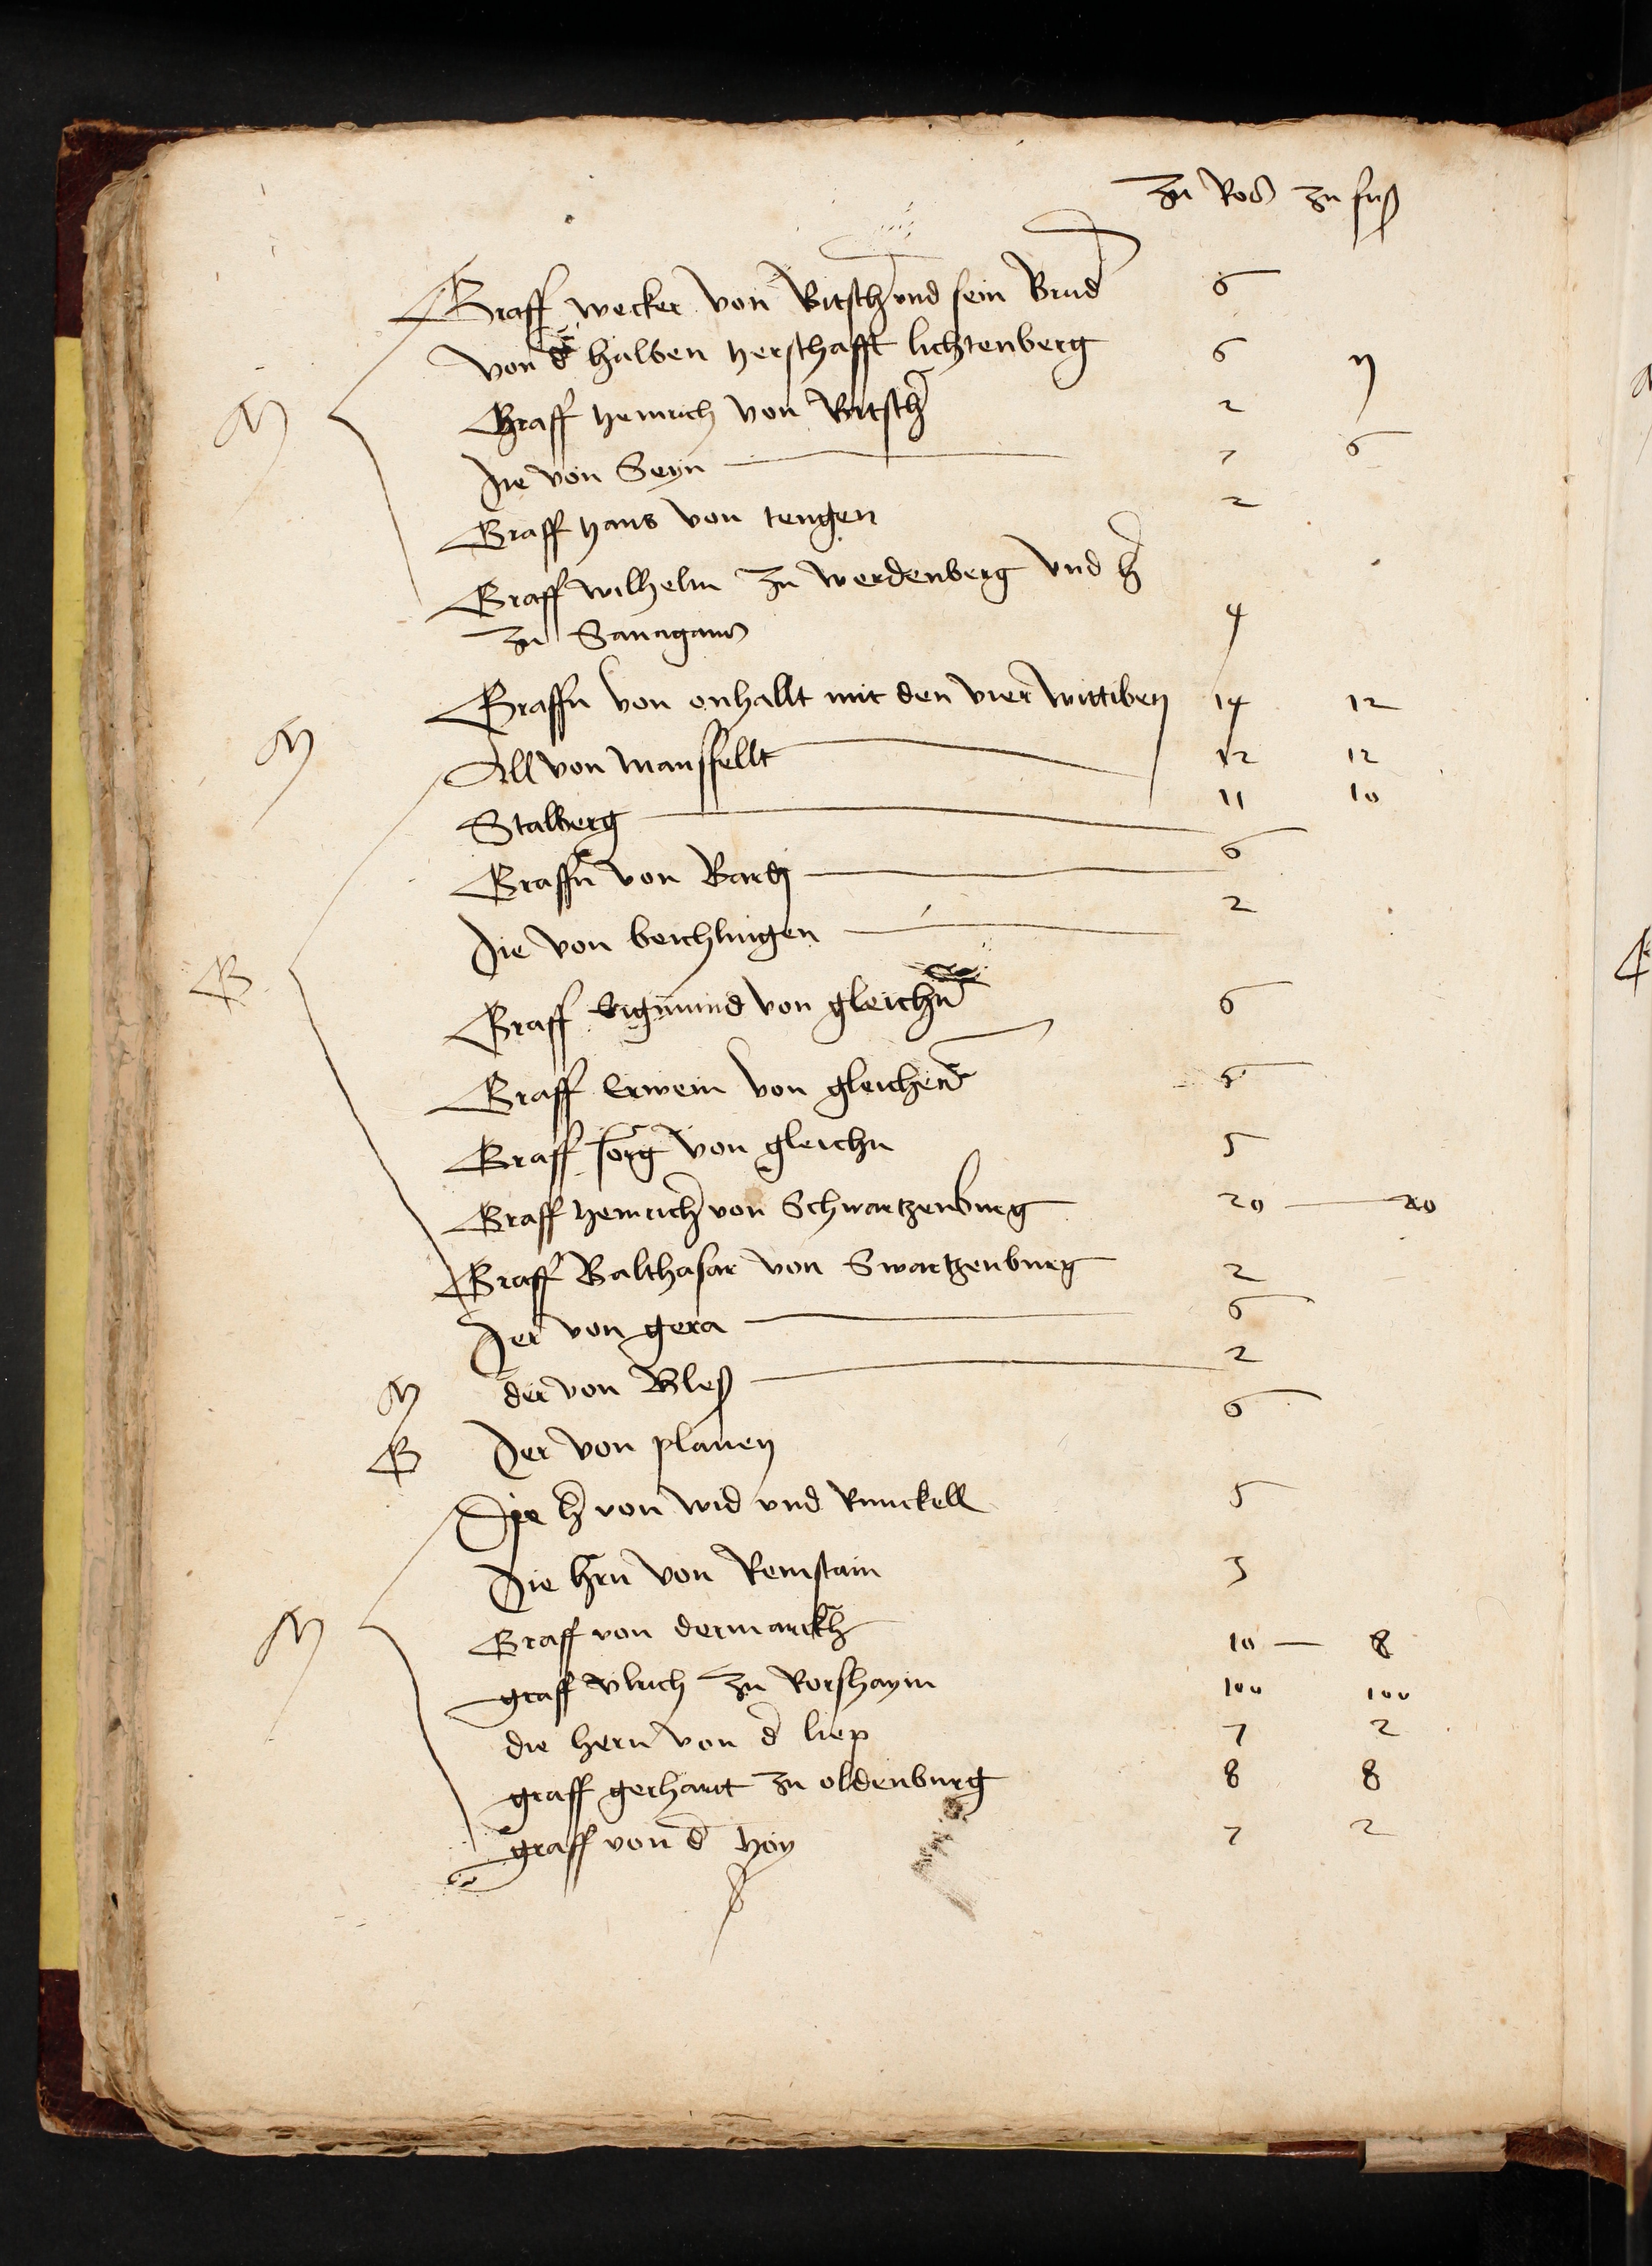 zu Ros zu fuß
Graff wecker von Bitsch und sein Brud 6
von d halben herschafft lichtenberg 6
Graff heinrich von Bitsch 2
Die von Seyn 7 6
Graff hans von tengen 2
Graff wilhelm zu werdenberg vnd h
zu Sanagans 4
Graffn von anhallt mit den vier wittiben 14 12
All von mansfellt 12 12
Stalberg 11 10
Graffn von Barby 6
Die von beichlingen 2
Graff Sigmund von gleichn 6
Graff Erwein von gleichen 6
Graff Jorg von gleichn 5
Graff heinrich von Schwartzenburg 20 20
Graff Balthasar von Swartzenburg 2
Der von gera 6
N der von Bleß 2
G Der von plauen 6
Die h von wid vnd Runckell 5
Die hrn von Reinstain 3
N
Graff von dermarckh 10 8
graff Vlrich zu Rorshaym 100 100
die hern von d liep 7 2
graff gerhart zu oldenburg 8 8
graff von d hoy 7 2